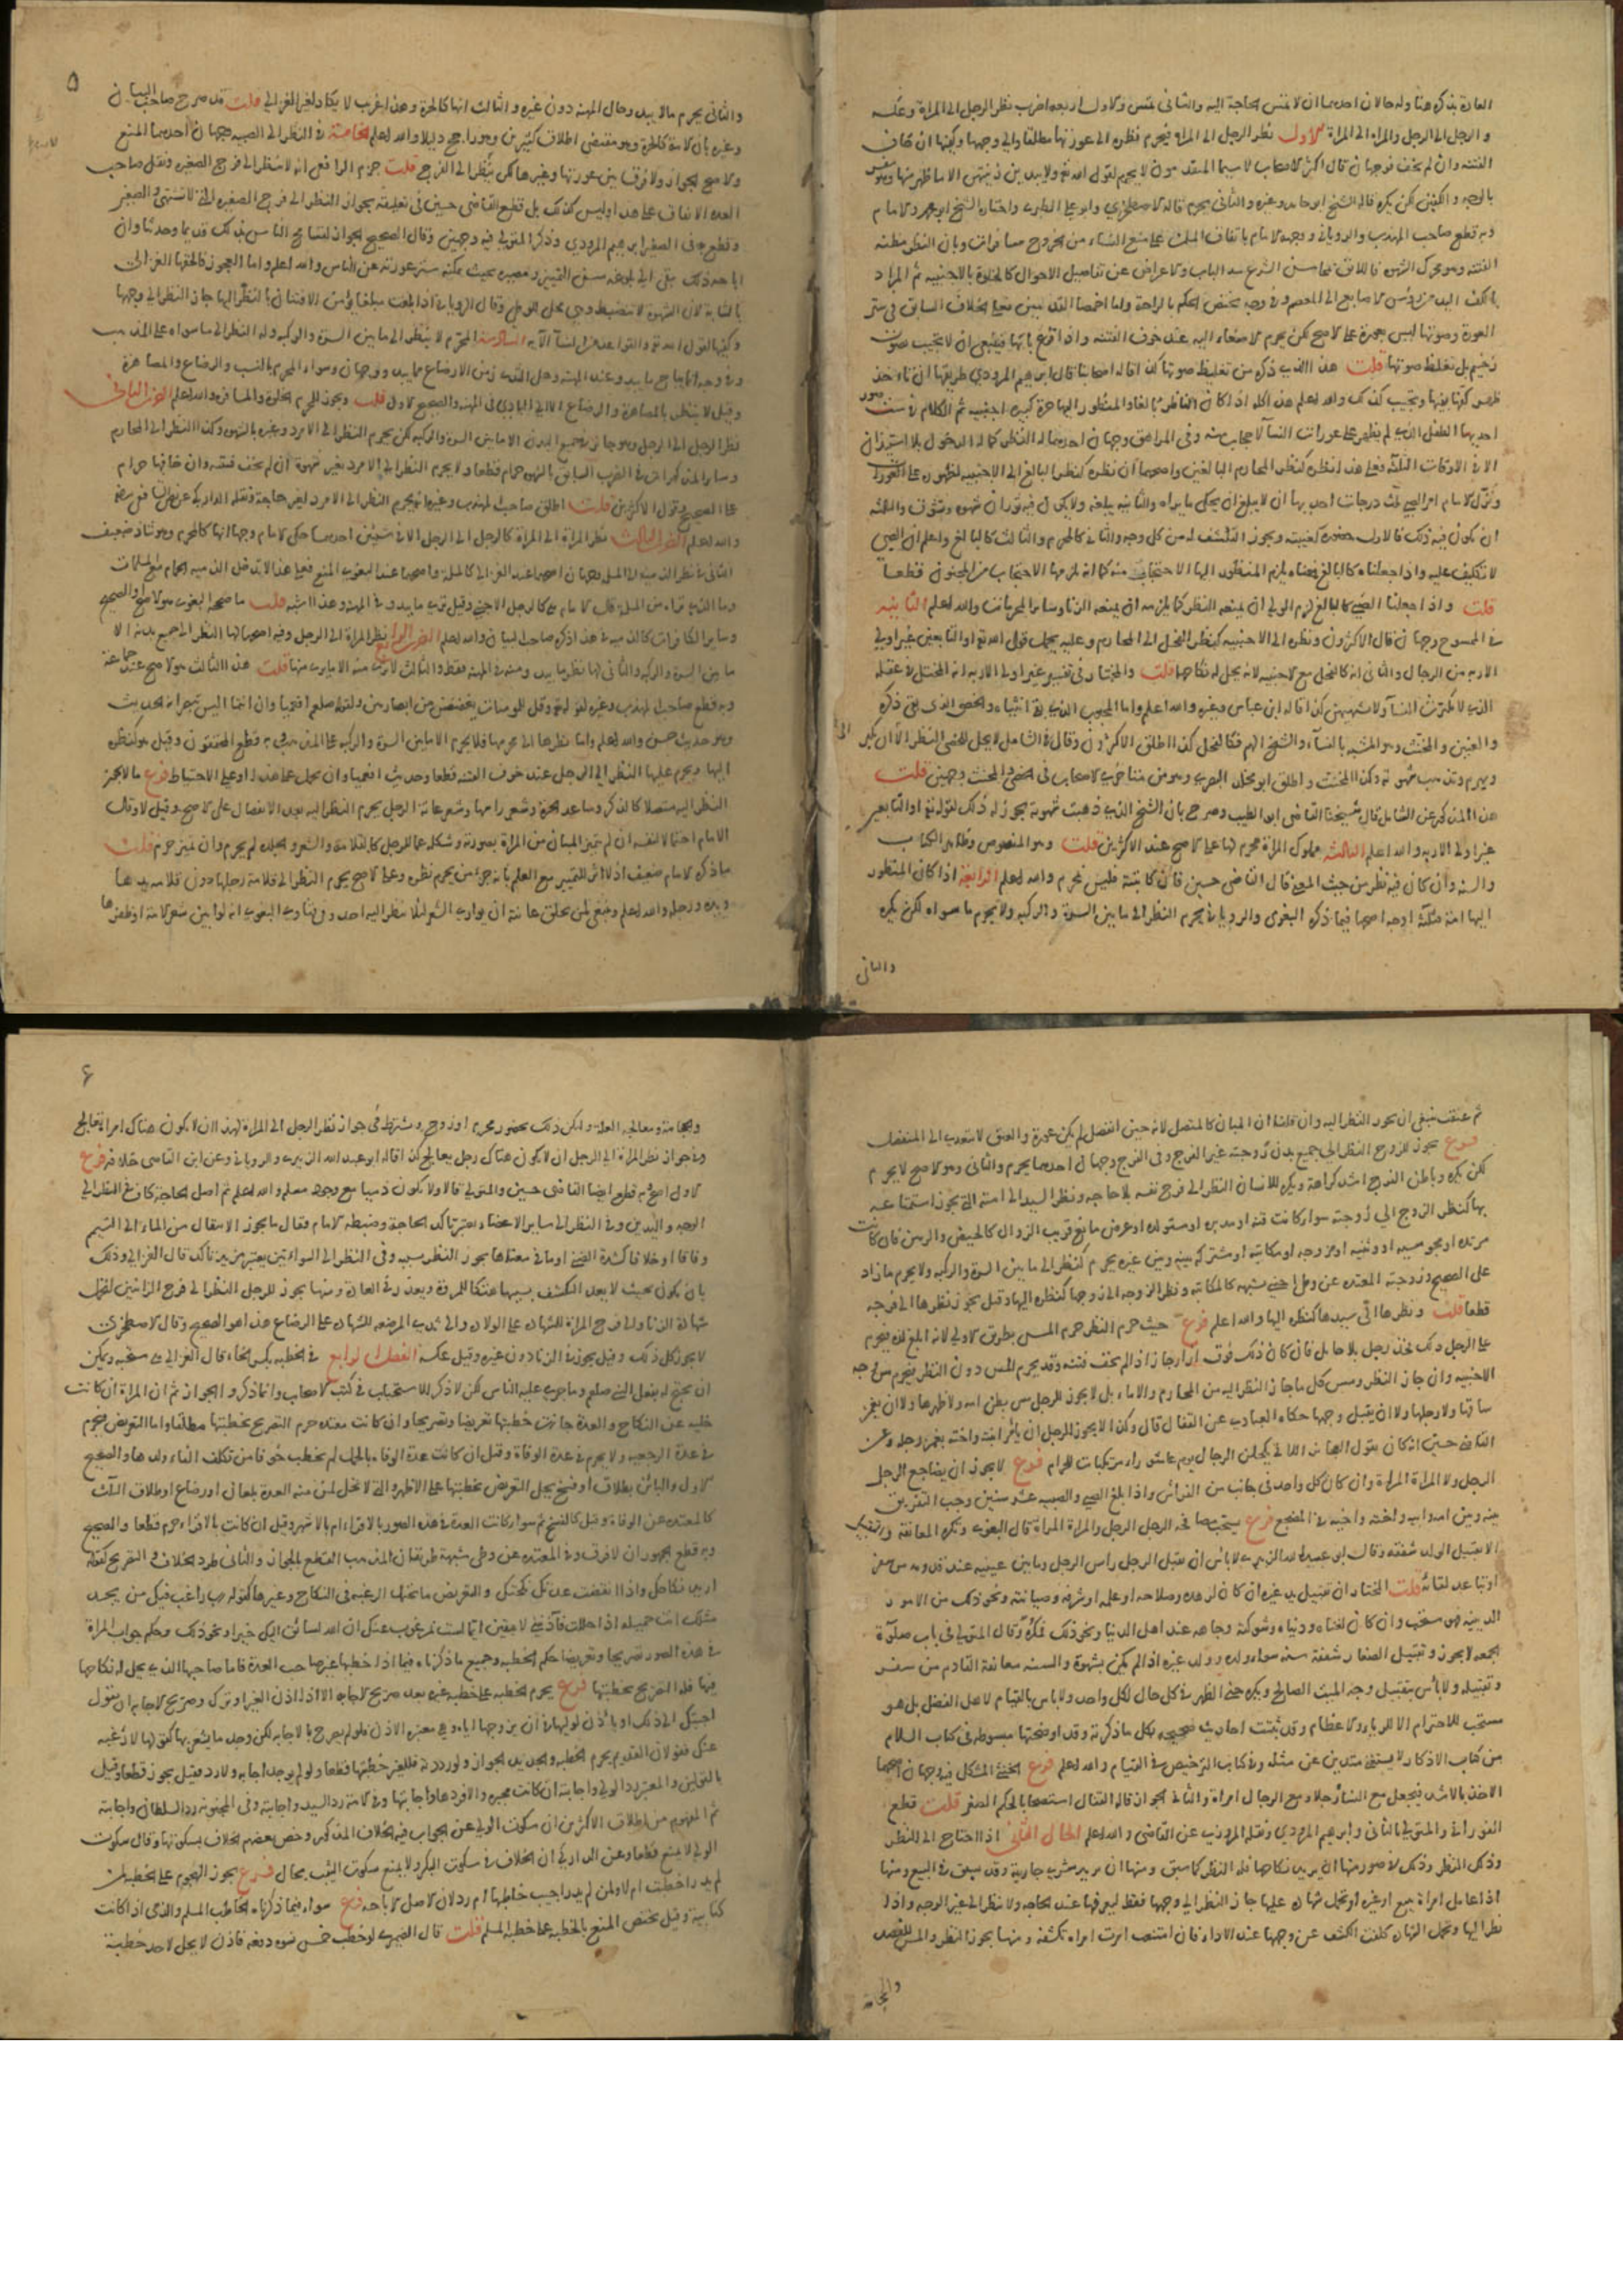 العادة بذكره هنا وله حالان احدهما ان لا تمس الحاجة اليه والثاني تمس والاول اربعة اضرب نظر الرجل الى المراة وعكسه
والرجل الى الرجل والمراه الى المراة الاول نظر الرجل الى المراه فيحرم نظره الى عورتها مطلقا والى وجهها وكفيها ان خاف
الفتنه وان لم يخف فوجهان قال اكثر الاصحاب لا سيما المتقدمون لا يحرم لقول الله تع ولا يبدين زينتهن الا ما ظهر منها وهو مفسر
بالوجه والكفين لكن يكره قاله الشيخ ابو حامد وغيره والثاني يحرم قاله الاصطخري وابو علي الطبري واختاره الشيخ ابو محمد والامام
وبه قطع صاحب المهذب والروياني ووجهه الامام باتفاق المسلمين على منع النساء من الخروج سافرات وبان النظر مظنه
الفتنه وهو محرك الشهوه فاللايق بمحاسن الشرع سد الباب والاعراض عن تفاصيل الاحوال كالخلوة بالاجنبيه ثم المراد
بالكف اليد من رؤس الاصابع الى المعصم وفي وجه يختص الحكم بالراحة
العورة وصوتها ليس بعورة على الاصح لكن يحرم الاصغاء اليه عند خوف الفتنه واذا قرع بابها فينبغي ان لا تجيب بصوت
رخيم بل تغلظ صوتها قلت هذا الذي ذكره من تغليظ صوتها كذا قاله اصحابنا قال ابرهيم المروذي طريقها ان تاخذ
ظهر كفها بفيها وتجيب كذلك والله اعلم هذا كله اذا كان الناظر بالغا والمنظور اليها حرة كبيره اجنبيه ثم الكلام في ست صور
احديها الطفل الذي لم يظهر على عورات النسآ لا حجاب منه وفي المراهق وجهان احدهما له النظر كما له الدخول بلا استيذان
الا في الاوقات الثلثة فعلى هذا نظره كنظر المحارم البالغين واصحهما ان نظره كنظر البالغ الى الاجنبيه لظهوره على العورات
ونزل الامام امر الصبي ثلث درجات احديها ان لا يبلغ ان يحكي ما يراه والثانيه يبلغه ولا يكون فيه ثوران شهوه وتشوف والثالثه
ان يكون فيه ذلك فالاول حضوره كغيبته ويجوز التكشف له من كل وجه والثاني كالمحرم والثالث كالبالغ واعلم ان الصبي
لا تكليف عليه واذا جعلناه كالبالغ فمعناه يلزم المنظور اليها الاحتجاب منه كما انه يلزمها الاحتجاب من المجنون قطعا
قلت واذا جعلنا الصبي كالبالغ لزم الولي ان يمنعه النظر كما يلزمه ان يمنعه الزنا وساير المحرمات والله اعلم الثانيه
في الممسوح وجهان قال الاكثرون ونظره الى الاجنبيه كنظر الفحل الى المحارم وعليه يحمل قول الله تع او التابعين غير اولي
الاربه من الرجال والثاني انه كالفحل مع الاجنبيه لانه يحل له نكاحها قلت والمختار في تفسير غير اولي الاربه انه المختل في عقله
الذي لا يكترث للنسآ ولا يشتهيهن كذا قاله ابن عباس وغيره والله اعلم واما المجبوب الذي بقي انثياه والخصي الذي بقي ذكره
والعنين والمخنث وهو المتشبه بالنسآء والشيخ الهم فكالفحل كذا اطلق الاكثرون وقال في الشامل لا يحل للخصي النظر الا ان يكبر
ويهرم وتذهب شهوته وكذا المخنث واطلق ابو مخلد البصري وهو من متاخري الاصحاب في الخصي والمخنث وجهين قلت
هذا المذكور عن الشامل قاله شيخنا القاضي ابو الطيب وصرح بان الشيخ الذي ذهبت شهوته يجوز له ذلك لقوله تع او التابعين
غير اولي الاربه والله اعلم الثالثه مملوك المراة محرم لها على الاصح عند الاكثرين قلت وهو المنصوص وظاهر الكتاب
والسنه وان كان فيه نظر من حيث المعنى قال القاضي حسين فان كاتبته فليس بمحرم والله اعلم الرابعة اذا كان المنظور
اليها امة فثلثة اوجه اصحها فيما ذكره البغوي والروياني يحرم النظر الى ما بين السرة والركبه ولا يحرم ما سواه لكن يكره
والثاني
٥
والثاني يحرم ما لا يبدو حال المهنه دون غيره والثالث انها كالحرة وهذا غريب لا يكاد لغير الغزالي قلت قد صرح صاحب البيان
وغيره بان الامة كالحرة وهو مقتضى اطلاق كثيرين وهو ارجح دليلا والله اعلم الخامسة في النظر الى الصبيه وجهان احدهما المنع
والاصح الجواز ولا فرق بين عورتها وغيرها لكن لا ينظر الى الفرج قلت جزم الرافعي انه لا ينظر الى فرج الصغيره ونقل صاحب
العده الاتفاق على هذا وليس كذلك بل قطع القاضي حسين في تعليقه بجواز النظر الى فرج الصغيره التي لا تشتهى والصغير
وقطع به في الصغير ابرهيم المروذي وذكر المتولي فيه وجهين وقال الصحيح الجواز لتسامح الناس بذلك قديما وحديثا وان
اباحة ذلك تبقى الى بلوغه سن التمييز ومصيره بحيث يمكنه ستر عورته عن الناس والله اعلم واما العجوز فالحقها الغزالي
بالشابة لان الشهوة لا تنضبط وهي محل الوطي وقال الروياني اذا بلغت مبلغا يؤمن الافتتان بالنظر اليها جاز النظر الى وجهها
وكفيها لقول الله تع والقواعد من النسآ الآيه السادسة المحرم لا ينظر الى ما بين السرة والركبه وله النظر الى ما سواه على المذهب
وقيل لا ينظر بالمصاهرة والرضاع الا الى البادي في المهنه والصحيح الاول قلت ويجوز للمحرم الخلوة والمسافره والله اعلم الضرب الثاني
نظر الرجل الى الرجل وهو جايز في جميع البدن الا ما بين السرة والركبه لكن يحرم النظر الى الامرد وغيره بالشهوه وكذا النظر الى المحارم
وساير المذكورات في الضرب السابق بالشهوه حرام قطعا ولا يحرم النظر الى الامرد بغير شهوة ان لم يخف فتنه وان خافها حرام
على الصحيح وقول الاكثرين قلت اطلق صاحب المهذب وغيره انه يحرم النظر الى الامرد لغير حاجة ونقله الداركي عن نص الشافعي رضه
والله اعلم الضرب الثالث نظر المراة الى المراة كالرجل الى الرجل الا في شيئين احدهما حكى الامام وجها انها كالمحرم وهو شاذ ضعيف
الثاني في نظر الذميه الى المسلمه وجهان اصحهما عند الغزالي كالمسلمة واصحهما عند البغوي المنع فعلى هذا لا تدخل الذميه الحمام مع المسلمات
وما الذي تراه من المسلمة قال الامام هي كالرجل الاجنبي وقيل ترى ما يبدو في المهنه وهذا اشبه قلت ما صححه البغوي هو الاصح والصحيح
وساير الكافرات كالذميه في هذا ذكره صاحب البيان والله اعلم الضرب الرابع نظر المراة الى الرجل وفيه اوجه اصحها لها النظر الى جميع بدنه الا
ما بين السرة والركبه والثاني لها نظر ما يبدو منه في المهنه فقط والثالث لا ترى منه الا ما يرى منها قلت هذا الثالث هو الاصح عند جماعة
وبه قطع صاحب المهذب وغيره لقوله تع وقل للمومنات يغضضن من ابصارهن ولقوله صلعم افعمياوان انتما اليس تبصرانه الحديث
وهو حديث حسن والله اعلم واما نظرها الى محرمها فلا يحرم الا ما بين السرة والركبه على المذهب وبه قطع المحققون وقيل هو كنظره
اليها ويحرم عليها النظر الى الرجل عند خوف الفتنه قطعا وحديث افعمياوان يحمل على هذا او على الاحتياط فرع ما لا يجوز
النظر اليه متصلا كالذكر وساعد الحرة وشعر راسها وشعر عانة الرجل يحرم النظر اليه بعد الانفصال على الاصح وقيل لا وقال
الامام احتمالا لنفسه ان لم يتميز المبان من المراة بصورته وشكله عما للرجل كالقلامة والشعر والجلدة لم يحرم وان تميز حرم قلت
ما ذكره الامام ضعيف اذ لا اثر للتمييز مع العلم بانه جزء من يحرم نظره وعلى الاصح يحرم النظر الى قلامة رجلها دون قلامه يدها
ويده ورجله والله اعلم وينبغي لمن يحلق عانته ان يواري الشعر لئلا ينظر اليه احد وفي فتاوى البغوي انه لو ابين شعر الامة او ظفرها
ثم عتقت ينبغي ان يجوز النظر اليه وان قلنا ان المبان كالمتصل لانه حين انفصل لم يكن عورة والعتق لا يتعدى الى المنفصل
فرع يجوز للزوج النظر الى جميع بدن زوجته غير الفرج وفي الفرج وجهان احدهما يحرم والثاني وهو الاصح لا يحرم
لكن يكره وباطن الفرج اشد كراهة ويكره للانسان النظر الى فرج نفسه بلا حاجه ونظر السيد الى امته التي يجوز استمتاعه
بها كنظر الزوج الى زوجته سواء كانت قنه او مدبره او مستولده او عرض مانع قريب الزوال كالحيض والرهن فان كانت
مرتده او مجوسيه او وثنيه او مزوجه او مكاتبه او مشتركه بينه وبين غيره يحرم كنظر الى ما بين السرة والركبه ولا يحرم ما زاد
على الصحيح وزوجته المعتده عن وطي اجنبي بشبهه كالمكاتبه ونظر الزوجه الى زوجها كنظره اليها وقيل يجوز نظرها الى فرجه
قطعا قلت ونظرها الى سيدها كنظره اليها والله اعلم فرع حيث حرم النظر حرم المس بطريق الاولى لانه ابلغ لذه فيحرم
على الرجل دلك فخذ رجل بلا حايل فان كان ذلك فوق ازار جاز اذا لم يخف فتنه وقد يحرم المس دون النظر فيحرم مس وجه
الاجنبيه وان جاز النظر ومس كل ما جاز النظر اليه من المحارم والاماء بل لا يجوز للرجل مس بطن امه ولا ظهرها ولا ان يغمز
ساقها ولا رجلها ولا ان يقبل وجهها حكاه العبادي عن القفال قال وكذا لا يجوز للرجل ان يامر ابنته واخته بغمز رجله وعن
القاضي حسين انه كان يقول العجايز اللاتي يكحلن الرجال يوم عاشوراء مرتكبات للحرام فرع لا يجوز ان يضاجع الرجل
الرجل ولا المراة المراة وان كان كل واحد في جانب من الفراش واذا بلغ الصبي والصبيه عشر سنين وجب التفريق
بينه وبين امه وابيه واخته واخيه في المضجع فرع يستحب مصافحه الرجل الرجل والمراة المراة قال البغوي وتكره المعانقة والتقبيل
الا تقبيل الولد شفقة وقال ابو عبيد الله الزبيري لا باس ان يقبل الرجل راس الرجل وما بين عينيه عند قدومه من سفر
او تباعد لقائه قلت المختار ان تقبيل يد غيره ان كان لزهده وصلاحه او علمه او شرفه وصيانته ونحو ذلك من الامور
الدينيه فهو مستحب وان كان لغناه ودنياه وشوكته وجاهه عند اهل الدنيا ونحو ذلك فمكروه وقال المتولي في باب صلوة
الجمعه لا يجوز وتقبيل الصغار شفقة سنه سواء ولده وولد غيره اذا لم يكن بشهوة والسنه معانقة القادم من سفر
وتقبيله ولا بأس بتقبيل وجه الميت الصالح ويكره حني الظهر في كل حال لكل واحد ولا باس بالقيام لاهل الفضل بل هو
مستحب للاحترام لا للرياء والاعظام وقد ثبتت احاديث صحيحه بكل ما ذكرته وقد اوضحتها مبسوطه في كتاب السلام
من كتاب الاذكار لا يستغني متدين عن مثله وفي كتاب الترخيص في القيام والله اعلم فرع الخنثى المشكل فيه وجهان اصحهما
الاخذ بالاشد فيجعل مع النسآ رجلا ومع الرجال امراة والثاني الجواز قاله القفال استصحابا لحكم الصغر قلت قطع
الفوراني والمتولي بالثاني وابرهيم المروذي ونقله المروذي عن القاضي والله اعلم الحال الثاني اذا احتاج الى النظر
وذلك لامور منها ان يريد نكاحها فله النظر كما سبق ومنها ان يريد شرى جارية وقد سبق في البيع ومنها
اذا عامل امراة ببيع او غيره او تحمل شهاده عليها جاز النظر الى وجهها فقط ليعرفها عند الحاجه ولا ينظر الى غير الوجه واذا
نظر اليها وتحمل الشهاده كلفت الكشف عن وجهها عند الاداء فان امتنعت امرت امراه بكشفه ومنها يجوز النظر والمس للفصد
والحجامه
٦
والحجامة ومعالجة العلة وليكن ذلك بحضور محرم او زوج ويشترط في جواز نظر الرجل الى المراة لهذا ان لا يكون هناك امراة تعالج
وفي جواز نظر المراة الى الرجل ان لا يكون هناك رجل يعالج كذا قاله ابو عبد الله الزبيري والروياني وعن ابن القاص خلافه قلت
الاول اصح وبه قطع ايضا القاضي حسين والمتولي قالا ولا يكون ذميا مع وجود مسلم والله اعلم ثم اصل الحاجة كاف في النظر الى
الوجه واليدين وفي النظر الى ساير الاعضاء يعتبر تاكد الحاجة وضبطه الامام فقال ما يجوز الانتقال من الماء الى التيمم
وفاقا او خلافا كشدة الضنى وما في معناها يجوز النظر بسببه وفي النظر الى السوءتين يعتبر مزيد تاكد قال الغزالي وذلك
بان يكون بحيث لا يعد التكشف بسببها هتكا للمروة ويعذر في العادة ومنها يجوز للرجل النظر الى فرج الزانيين لتحمل
شهادة الزنا والى فرج المراة للشهادة على الولادة والى ثدي المرضعه للشهادة على الرضاع هذا هو الصحيح وقال الاصطخري
لا يجوز كل ذلك وقيل يجوز في الزنا دون غيره وقيل عكسه الفصل الرابع في الخطبه بكسر الخاء قال الغزالي هي مستحبه ويمكن
ان يحتج له بفعل النبي صلعم وما جرى عليه الناس لكن لا ذكر للاستحباب في كتب الاصحاب وانما ذكروا الجواز ثم ان المراة ان كانت
خليه عن النكاح والعدة جازت خطبتها تعريضا وتصريحا وان كانت معتده حرم التصريح بخطبتها مطلقا واما التعريض فيحرم
في عدة الرجعيه ولا يحرم في عدة الوفاة وقيل ان كانت عدة الوفاه بالحمل لم يخطب خوفا من تكلف القاء ولدها والصحيح
الاول والبائن بطلاق او فسخ يحل التعريض بخطبتها على الاظهر والتي لا تحل لمن منه العدة بلعان او رضاع او طلاق الثلث
كالمعتده عن الوفاة وقيل كالفسخ ثم سواء كانت العدة في هذه الصور بالاقراء ام بالاشهر وقيل ان كانت بالاقراء حرم قطعا والصحيح
وبه قطع الجمهور ان لا فرق وفي المعتده عن وطي شبهة طريقان المذهب القطع بالجواز والثاني طرد الخلاف والتصريح كقوله
اريد نكاحك واذا انقضت عدتك نكحتك والتعريض ما يحتمل الرغبة في النكاح وغيرها كقوله رب راغب فيك من يجد
مثلك انت جميله اذا حللت فآذنيني لا تبقين ايما لست بمرغوب عنك ان الله لسائق اليك خيرا ونحو ذلك وحكم جواب المراة
في هذه الصور تصريحا وتعريضا حكم الخطبه وجميع ما ذكرناه فيما اذا خطبها غير صاحب العدة فاما صاحبها الذي يحل له نكاحها
فيها فله التصريح بخطبتها فرع يحرم الخطبه على خطبة غيره بعد صريح الاجابه الا اذا اذن الغير او ترك وصريح الاجابة ان تقول
اجبتك الى ذلك او تاذن لوليها في ان يزوجها اياه وهي معتبرة الاذن فلو لم تصرح بالاجابة لكن وجد ما يشعر بها كقولها لا رغبة
عنك فقولان القديم يحرم الخطبه والجديد الجواز ولو ردته فللغير خطبتها قطعا ولو لم يوجد اجابة ولا رد فقيل يجوز قطعا وقيل
بالقولين والمعتبر رد الولي واجابته ان كانت مجبره والا فردها واجابتها وفي الامة رد السيد واجابته وفي المجنونه رد السلطان واجابته
ثم المفهوم من اطلاق الاكثرين ان سكوت الولي عن الجواب فيه الخلاف المذكور وخص بعضهم الخلاف بسكوتها وقال سكوت
الولي لا يمنع قطعا وعن الداركي ان الخلاف في سكوت البكر ولا يمنع سكوت الثيب بحال فرع يجوز الهجوم على الخطبه لمن
لم يدر اخطبت ام لا ولمن لم يدر اجيب خاطبها ام رد لان الاصل الاباحه فرع سواء فيما ذكرناه الخاطب المسلم والذمي اذا كانت
كتابية وقيل يختص المنع بالخطبه على خطبة المسلم قلت قال الصيمري لو خطب خمس نسوه دفعه فاذن لا يحل لاحد خطبة